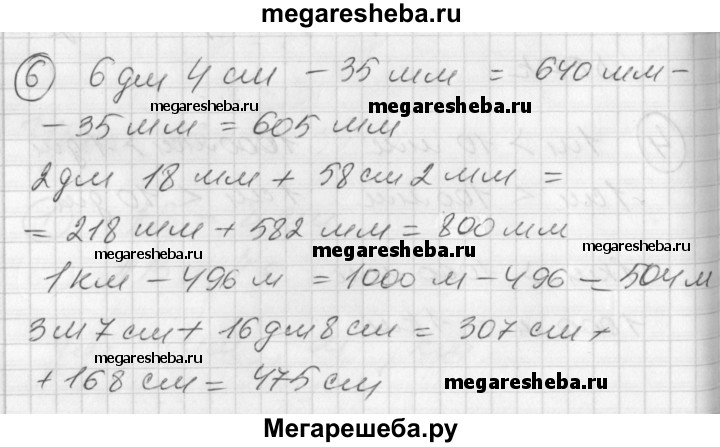 megaresheba.ru
6 6 дм 4 см - 35 мм = 640 мм -
megaresheba.ru megaresheba.ru
- 35 мм = 605 мм
2 дм 18 мм + 58 см 2 мм =
= 218 мм + 582 мм = 800 мм
megaresheba.ru megaresheba.ru megaresheba.ru
1 км - 496 м = 1000 м - 496 = 504 м
3 м 7 см + 16 дм 8 см = 307 см +
megaresheba.ru
+ 168 см = 475 см megaresheba.ru
Мегарешеба.ру